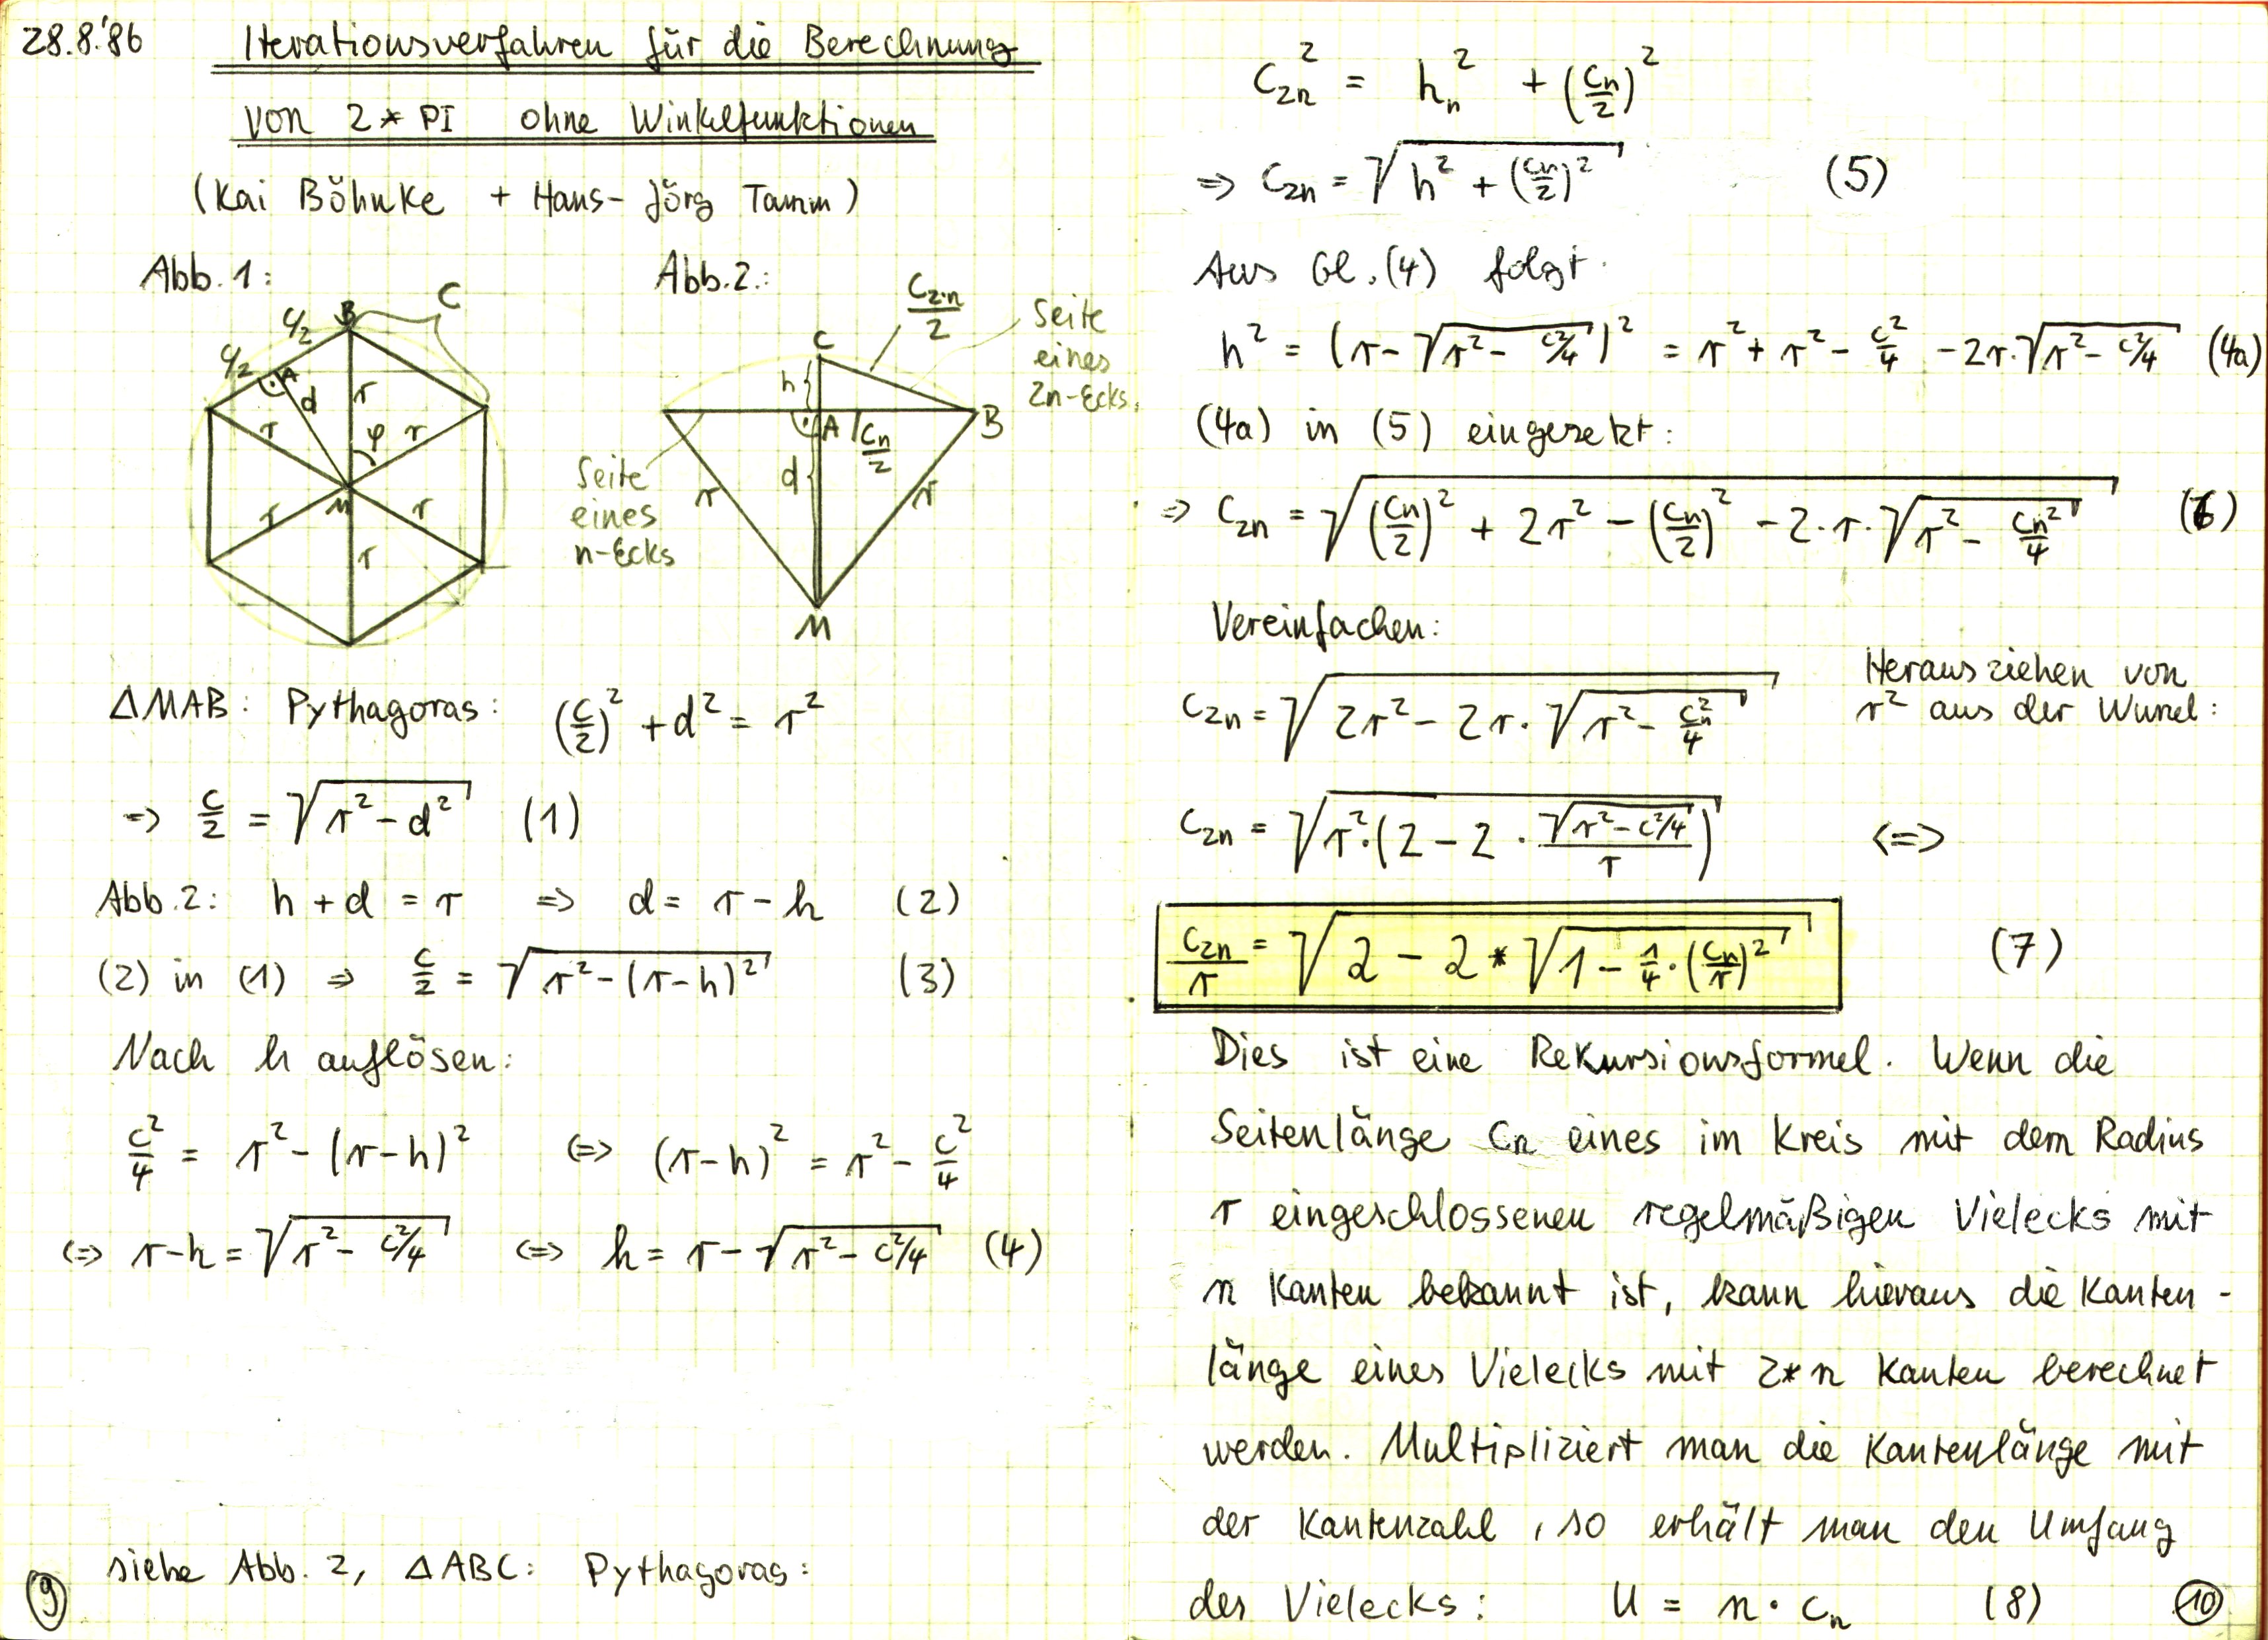 28.8.'86 Iterationsverfahren für die Berechnung
von 2 * PI ohne Winkelfunktionen
(Kai Böhnke + Hans-Jörg Tamm)
Abb. 1: Abb. 2.:
c/2 c/2 B C
A d r φ r r
M r r r
C c₂.ₙ/2
Seite eines 2n-Ecks.
h A cₙ/2 B
d r r
Seite eines n-Ecks
M
ΔMAB: Pythagoras: (c/2)² + d² = r²
=> c/2 = √(r² - d²) (1)
Abb. 2: h + d = r => d = r - h (2)
(2) in (1) => c/2 = √(r² - (r-h)²) (3)
Nach h auflösen:
c²/4 = r² - (r-h)² <=> (r-h)² = r² - c²/4
<=> r-h = √(r² - c²/4) <=> h = r - √(r² - c²/4) (4)
siehe Abb. 2, ΔABC: Pythagoras:
9
c₂ₙ² = hₙ² + (cₙ/2)²
=> c₂ₙ = √(h² + (cₙ/2)²) (5)
Aus Gl. (4) folgt
h² = (r - √(r² - c²/4))² = r² + r² - c²/4 - 2r·√(r² - c²/4) (4a)
(4a) in (5) eingesetzt:
=> c₂ₙ = √((cₙ/2)² + 2r² - (cₙ/2)² - 2·r·√(r² - cₙ²/4)) (6)
Vereinfachen:
Herausziehen von
r² aus der Wurzel:
c₂ₙ = √(2r² - 2r·√(r² - cₙ²/4))
c₂ₙ = √(r²·(2 - 2·√(r² - c²/4)/r)) <=>
c₂ₙ/r = √(2 - 2 * √(1 - 1/4·(cₙ/r)²)) (7)
Dies ist eine Rekursionsformel. Wenn die
Seitenlänge cₙ eines im Kreis mit dem Radius
r eingeschlossenen regelmäßigen Vielecks mit
n Kanten bekannt ist, kann hieraus die Kanten-
länge eines Vielecks mit 2*n Kanten berechnet
werden. Multipliziert man die Kantenlänge mit
der Kantenzahl, so erhält man den Umfang
des Vielecks: U = n · cₙ (8)
10